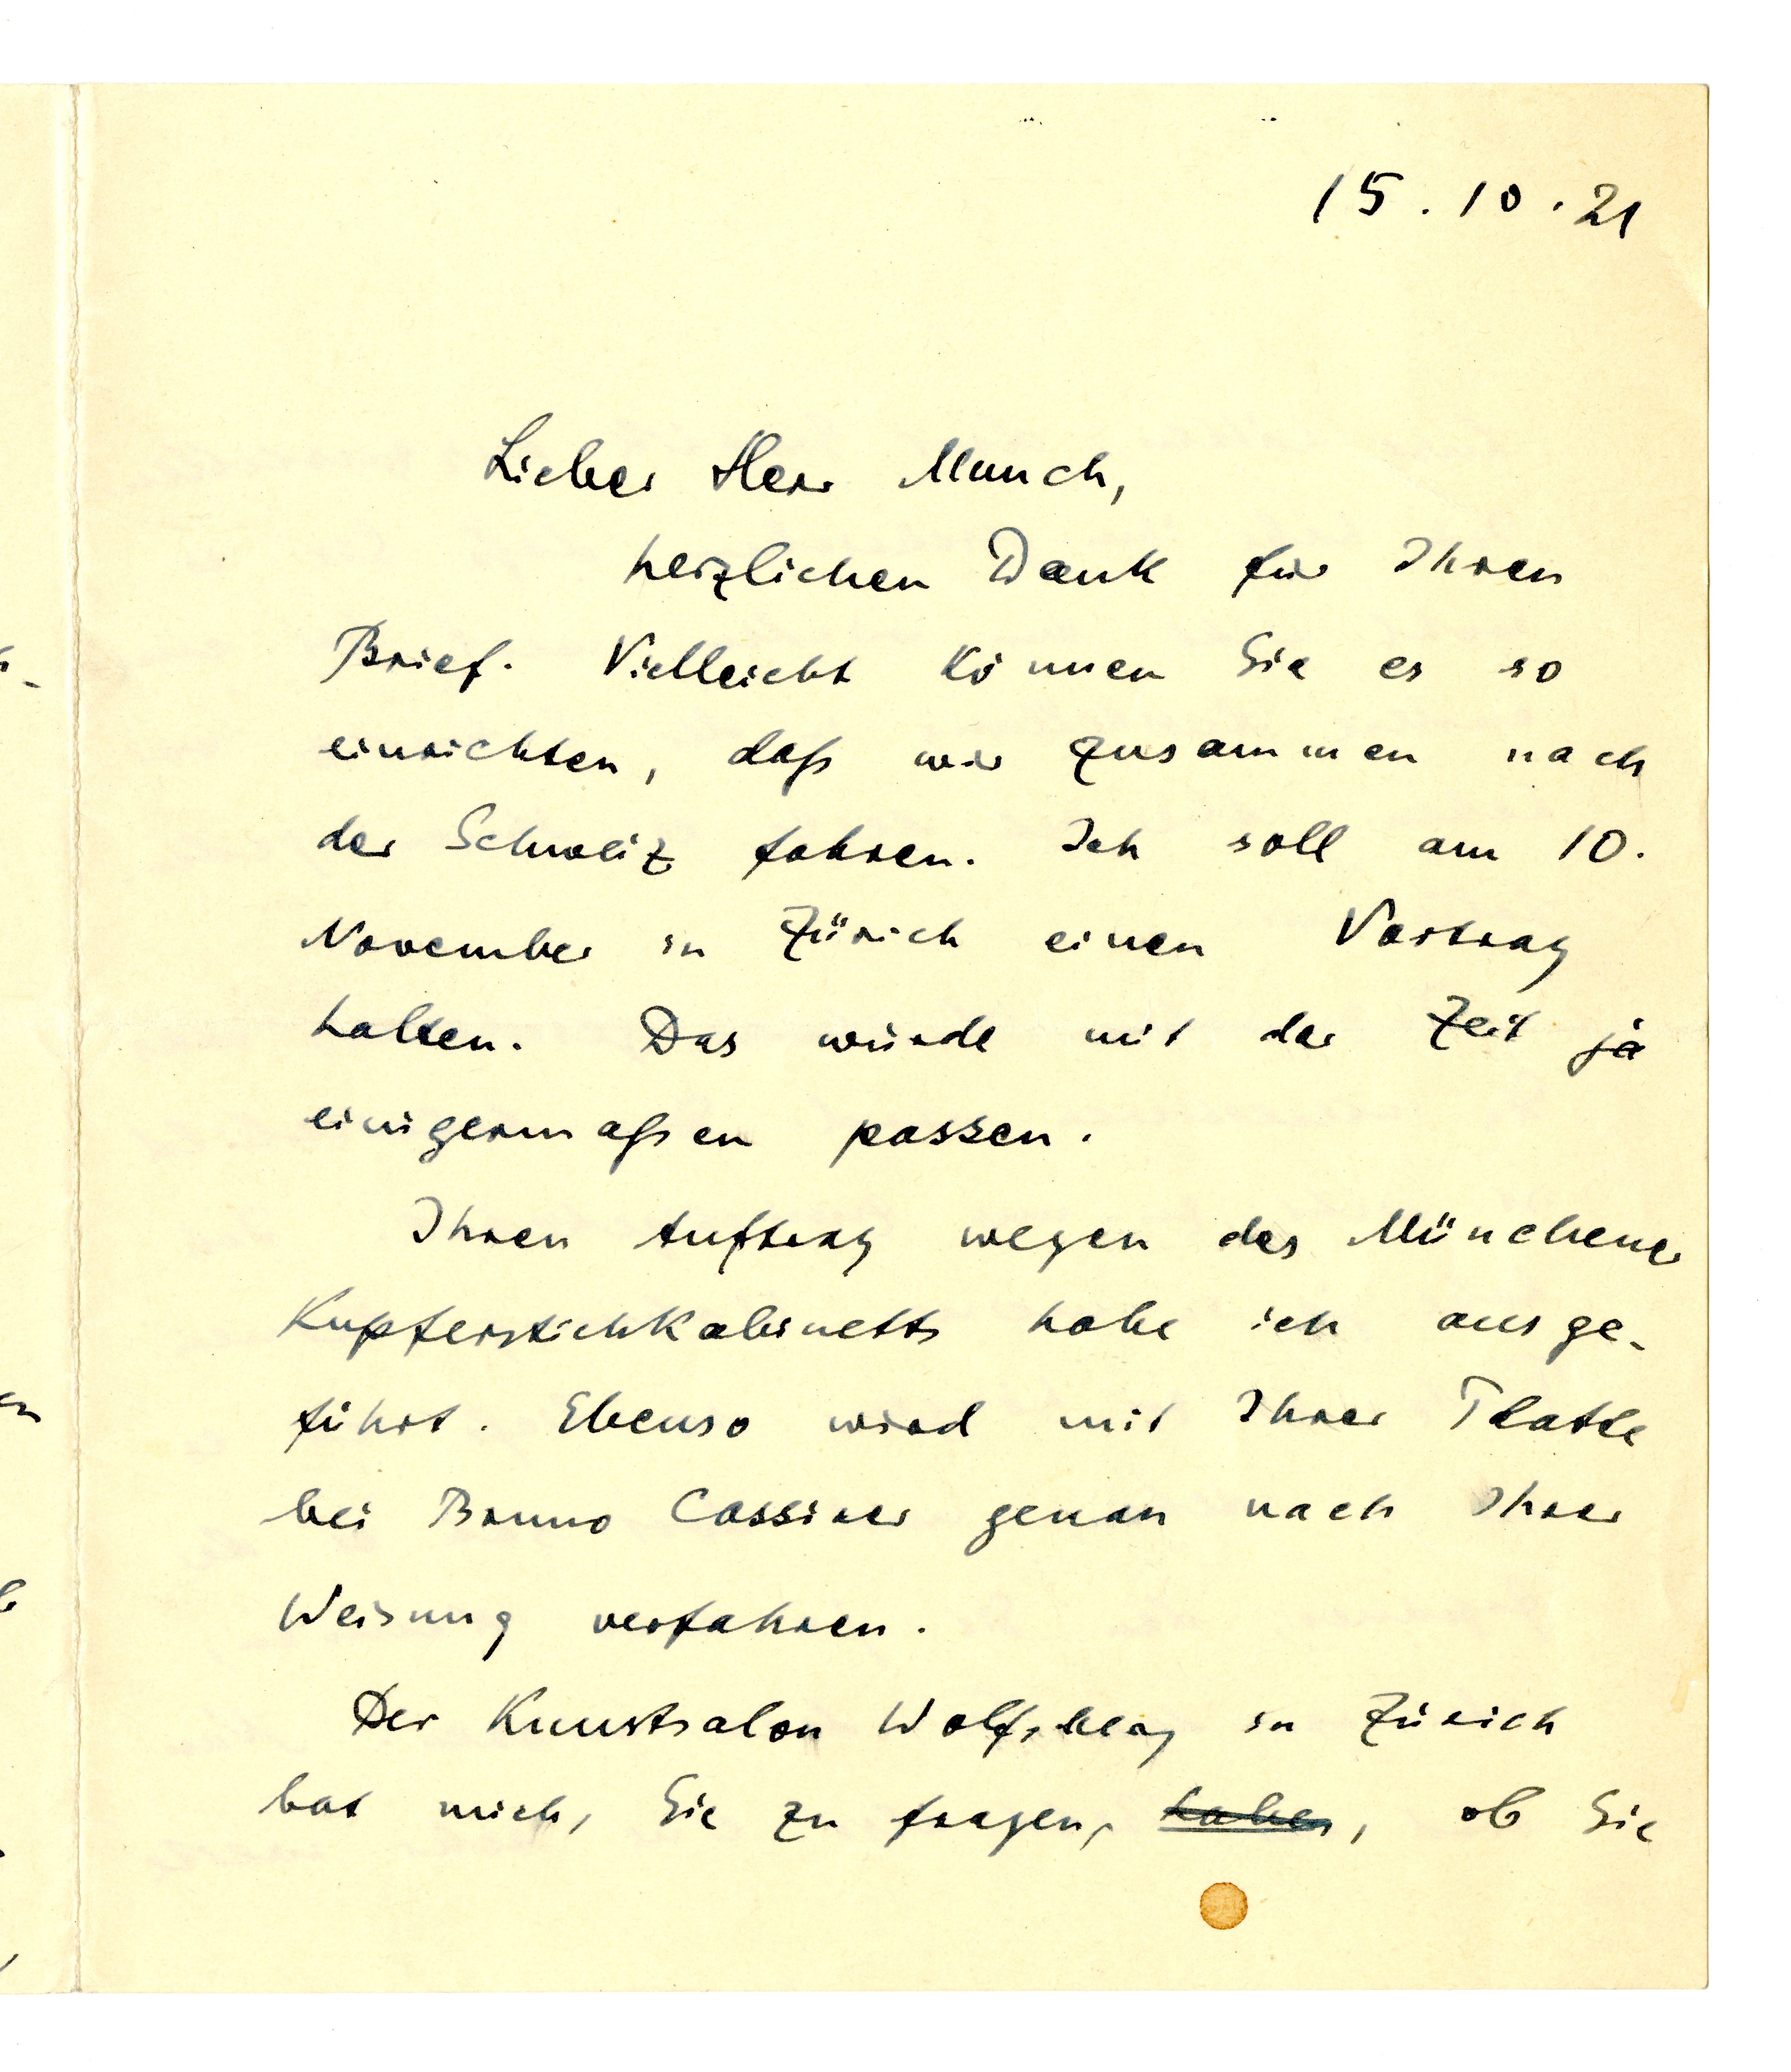 15.10.21
Lieber Herr Munch,
herzlichen Dank für Ihren
Brief. Vielleicht können Sie es so
einrichten, daß wir zusammen nach
der Schweiz fahren. Ich soll am 10.
November in Zürich einen Vortrag
halten. Das würde mit der Zeit ja
einigermaßen passen.
Ihren Auftrag wegen des Münchener
Kupferstichkabinetts habe ich ausge-
führt. Ebenso wird mit Ihrer Platte
bei Bruno Cassirer genau nach Ihrer
Weisung verfahren.
Der Kunstsalon Wolfsberg in Zürich
bat mich, Sie zu fragen, haben, ob Sie